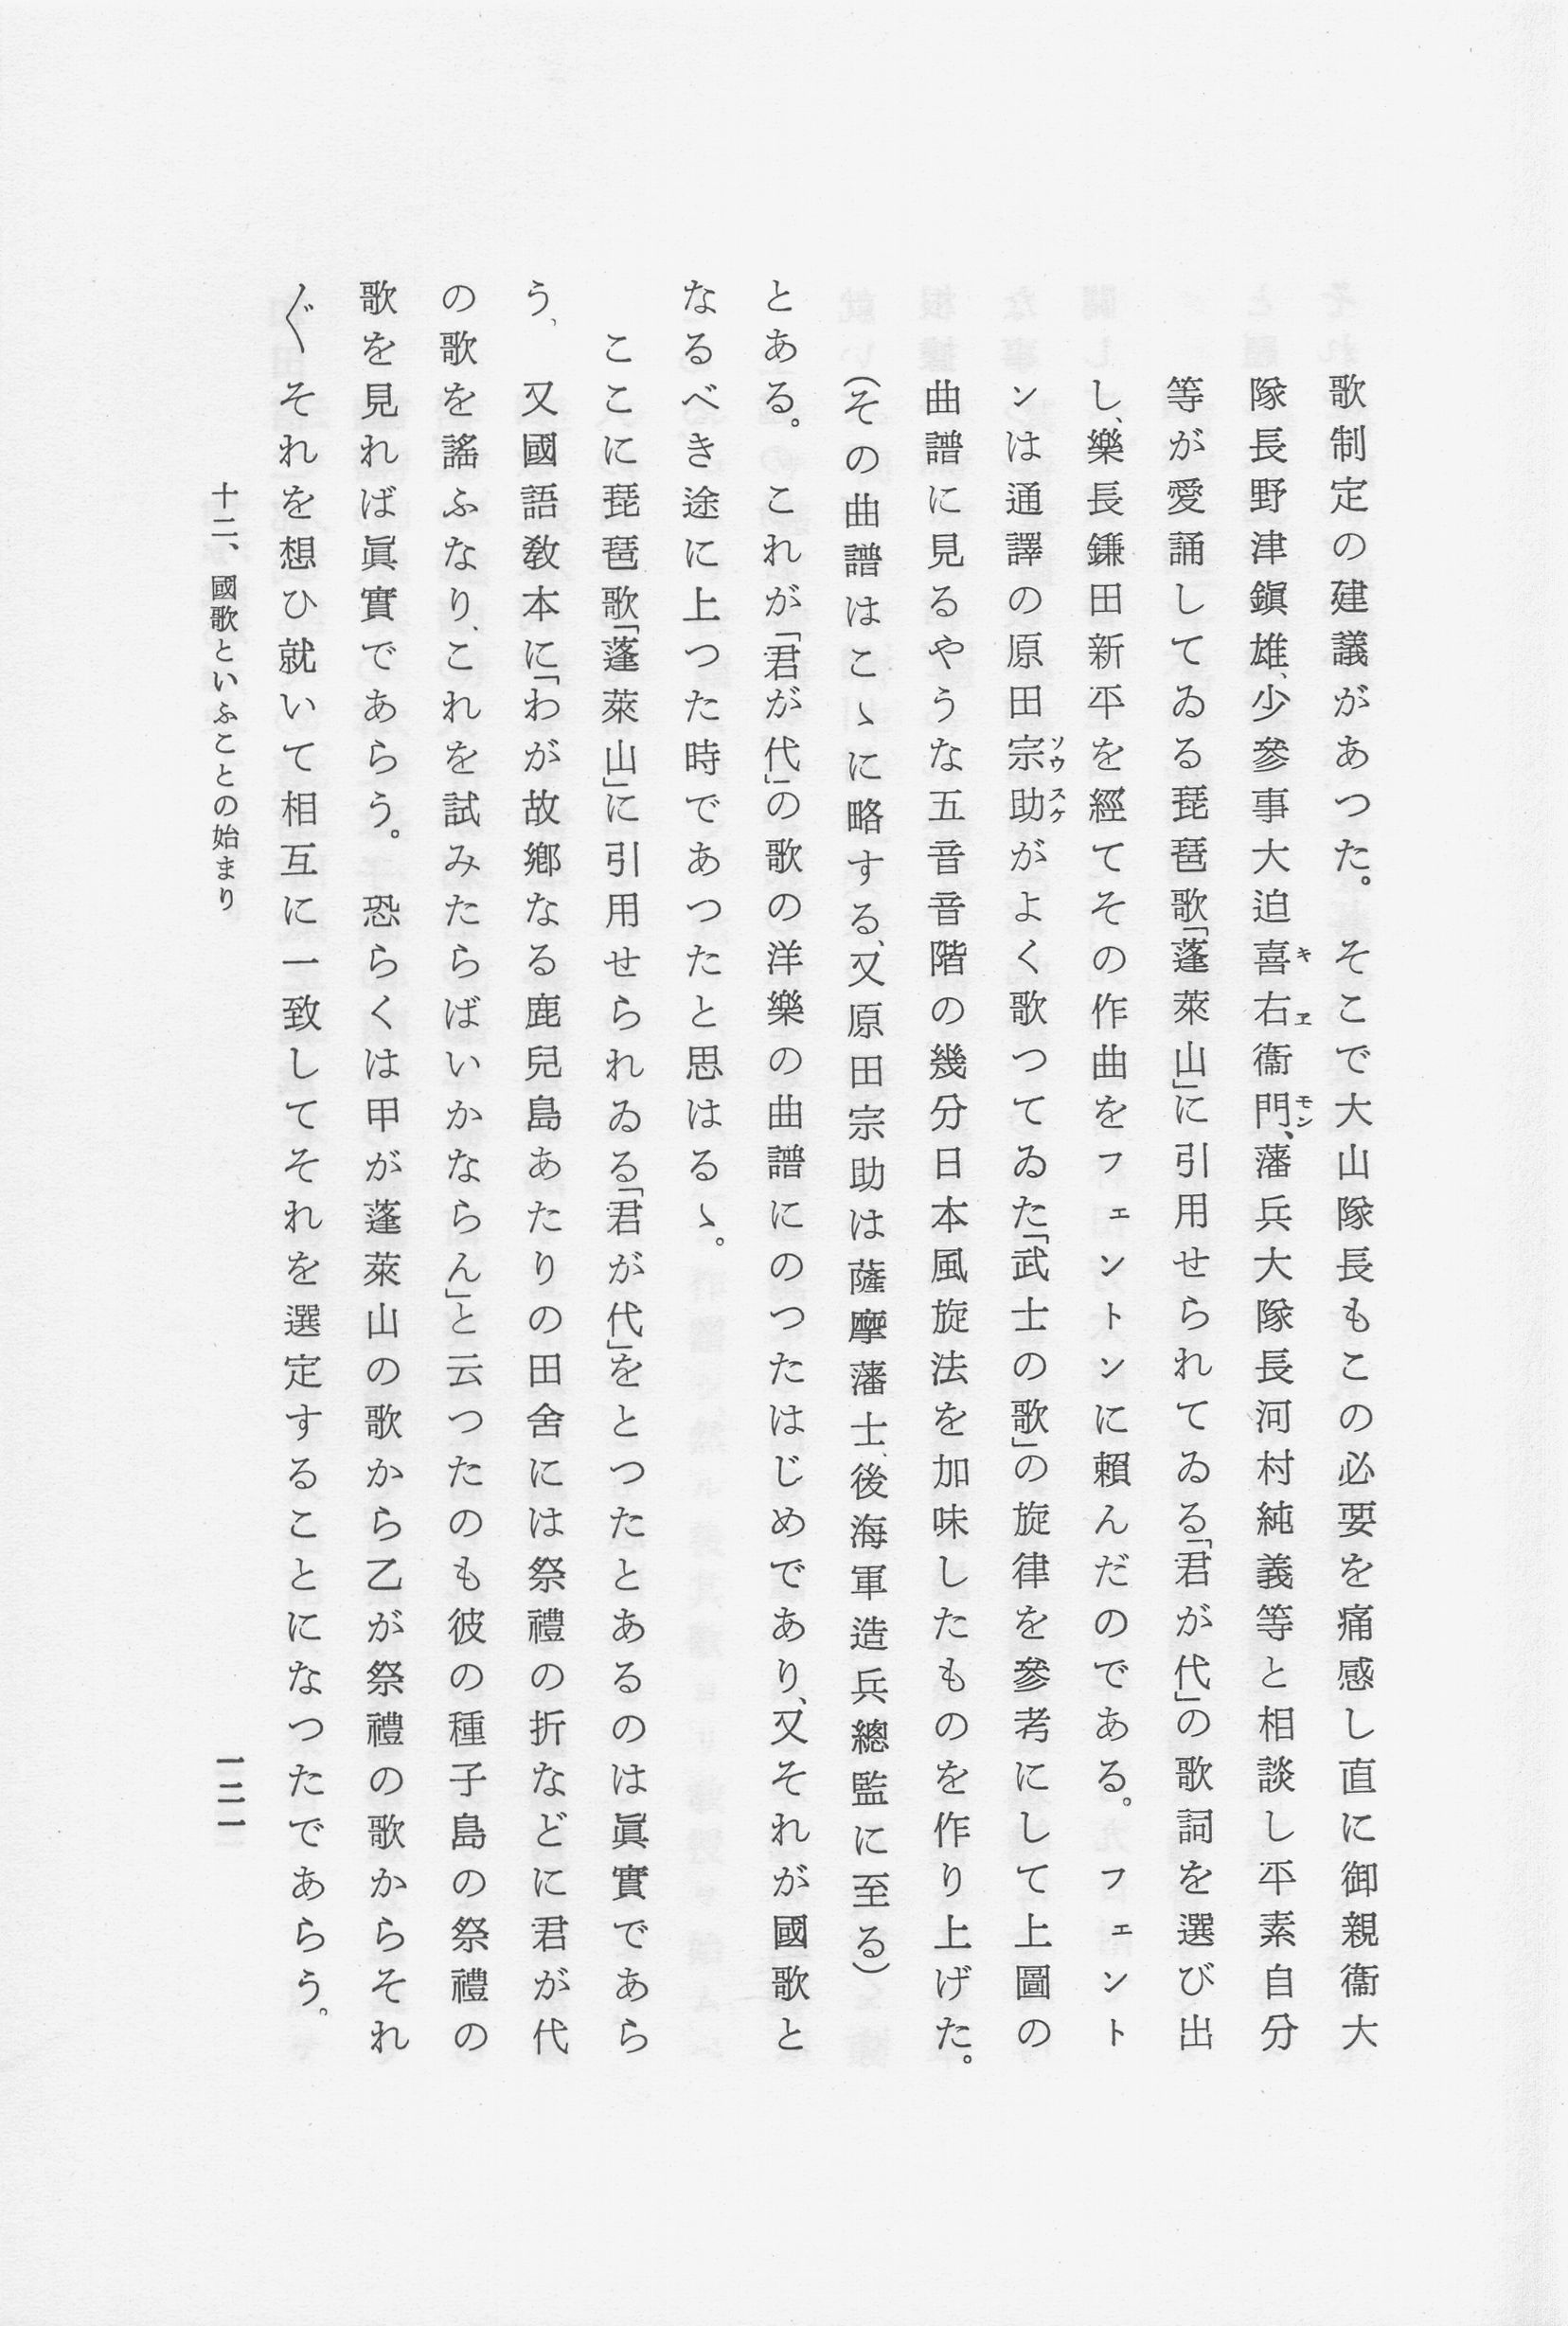 歌制定の建議があつた。そこで大山隊長もこの必要を痛感し直に御親衞大
隊長野津鎭雄、少參事大迫喜右衞門、藩兵大隊長河村純義等と相談し平素自分
等が愛誦してゐる琵琶歌「蓬萊山」に引用せられてゐる「君が代」の歌詞を選び出
し、樂長鎌田新平を經てその作曲をフェントンに賴んだのである。フェント
ンは通譯の原田宗助がよく歌つてゐた「武士の歌」の旋律を參考にして上圖の
曲譜に見るやうな五音音階の幾分日本風旋法を加味したものを作り上げた。
(その曲譜はこゝに略する、又原田宗助は薩摩藩士、後海軍造兵總監に至る)
とある。これが「君が代」の歌の洋樂の曲譜にのつたはじめであり、又それが國歌と
なるべき途に上つた時であつたと思はるゝ。
ここに琵琶歌「蓬萊山」に引用せられゐる「君が代」をとつたとあるのは眞實であら
う、又國語教本に「わが故鄕なる鹿兒島あたりの田舍には祭禮の折などに君が代
の歌を謠ふなり、これを試みたらばいかならん」と云つたのも彼の種子島の祭禮の
歌を見れば眞實であらう。恐らくは甲が蓬萊山の歌から乙が祭禮の歌からそれ
〲それを想ひ就いて相互に一致してそれを選定することになつたであらう。
十二、國歌といふことの始まり
一二一